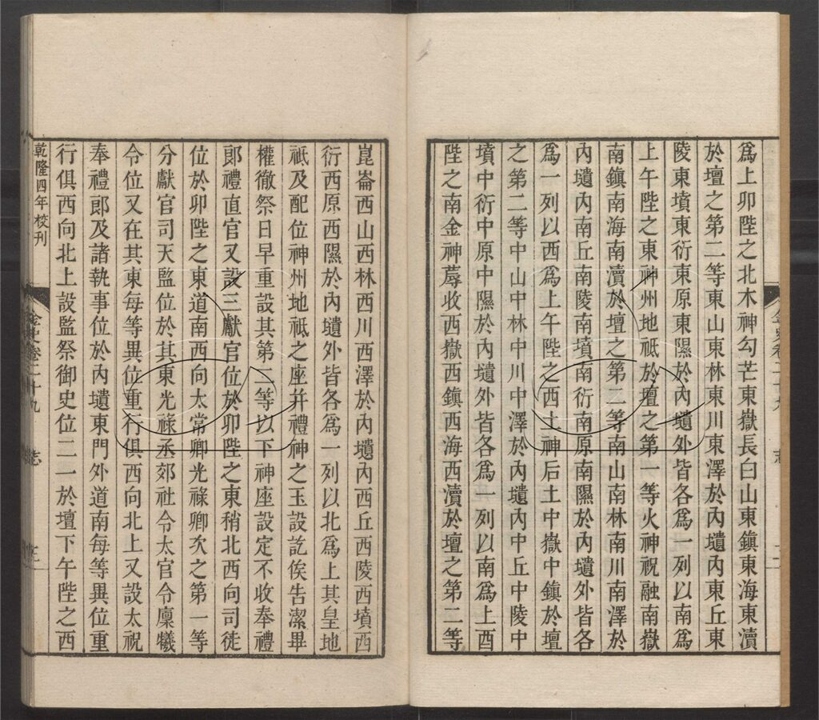 爲上卯陛之北木神勾芒東嶽長白山東鎮東海東瀆
於壇之第二等東山東林東川東澤於內壝內東丘東
陵東墳東衍東原東隰於內壝外皆各爲一列以南爲
上午陛之東神州地祇於壇之第一等火神祝融南嶽
南鎮南海南瀆於壇之第二等南山南林南川南澤於
內壝內南丘南陵南墳南衍南原南隰於內壝外皆各
爲一列以西爲上午陛之西土神后土中嶽中鎮於壇
之第二等中山中林中川中澤於內壝內中丘中陵中
墳中衍中原中隰於內壝外皆各爲一列以南爲上酉
陛之南金神蓐收西嶽西鎮西海西瀆於壇之第二等
崑崙西山西林西川西澤於內壝內西丘西陵西墳西
衍西原西隰於內壝外皆各爲一列以北爲上其皇地
祇及配位神州地祇之座并禮神之玉設訖俟告潔畢
權徹祭日早重設其第二等以下神座設定不收奉禮
郎禮直官又設三獻官位於卯陛之東稍北西向司徒
位於卯陛之東道南西向太常卿光祿卿次之第一等
分獻官司天監位於其東光祿丞郊社令太官令廩犧
令位又在其東每等異位重行俱西向北上又設太祝
奉禮郎及諸執事位於內壝東門外道南每等異位重
行俱西向北上設監祭御史位二一於壇下午陛之西
乾隆四年校刊
金史卷二十九
志